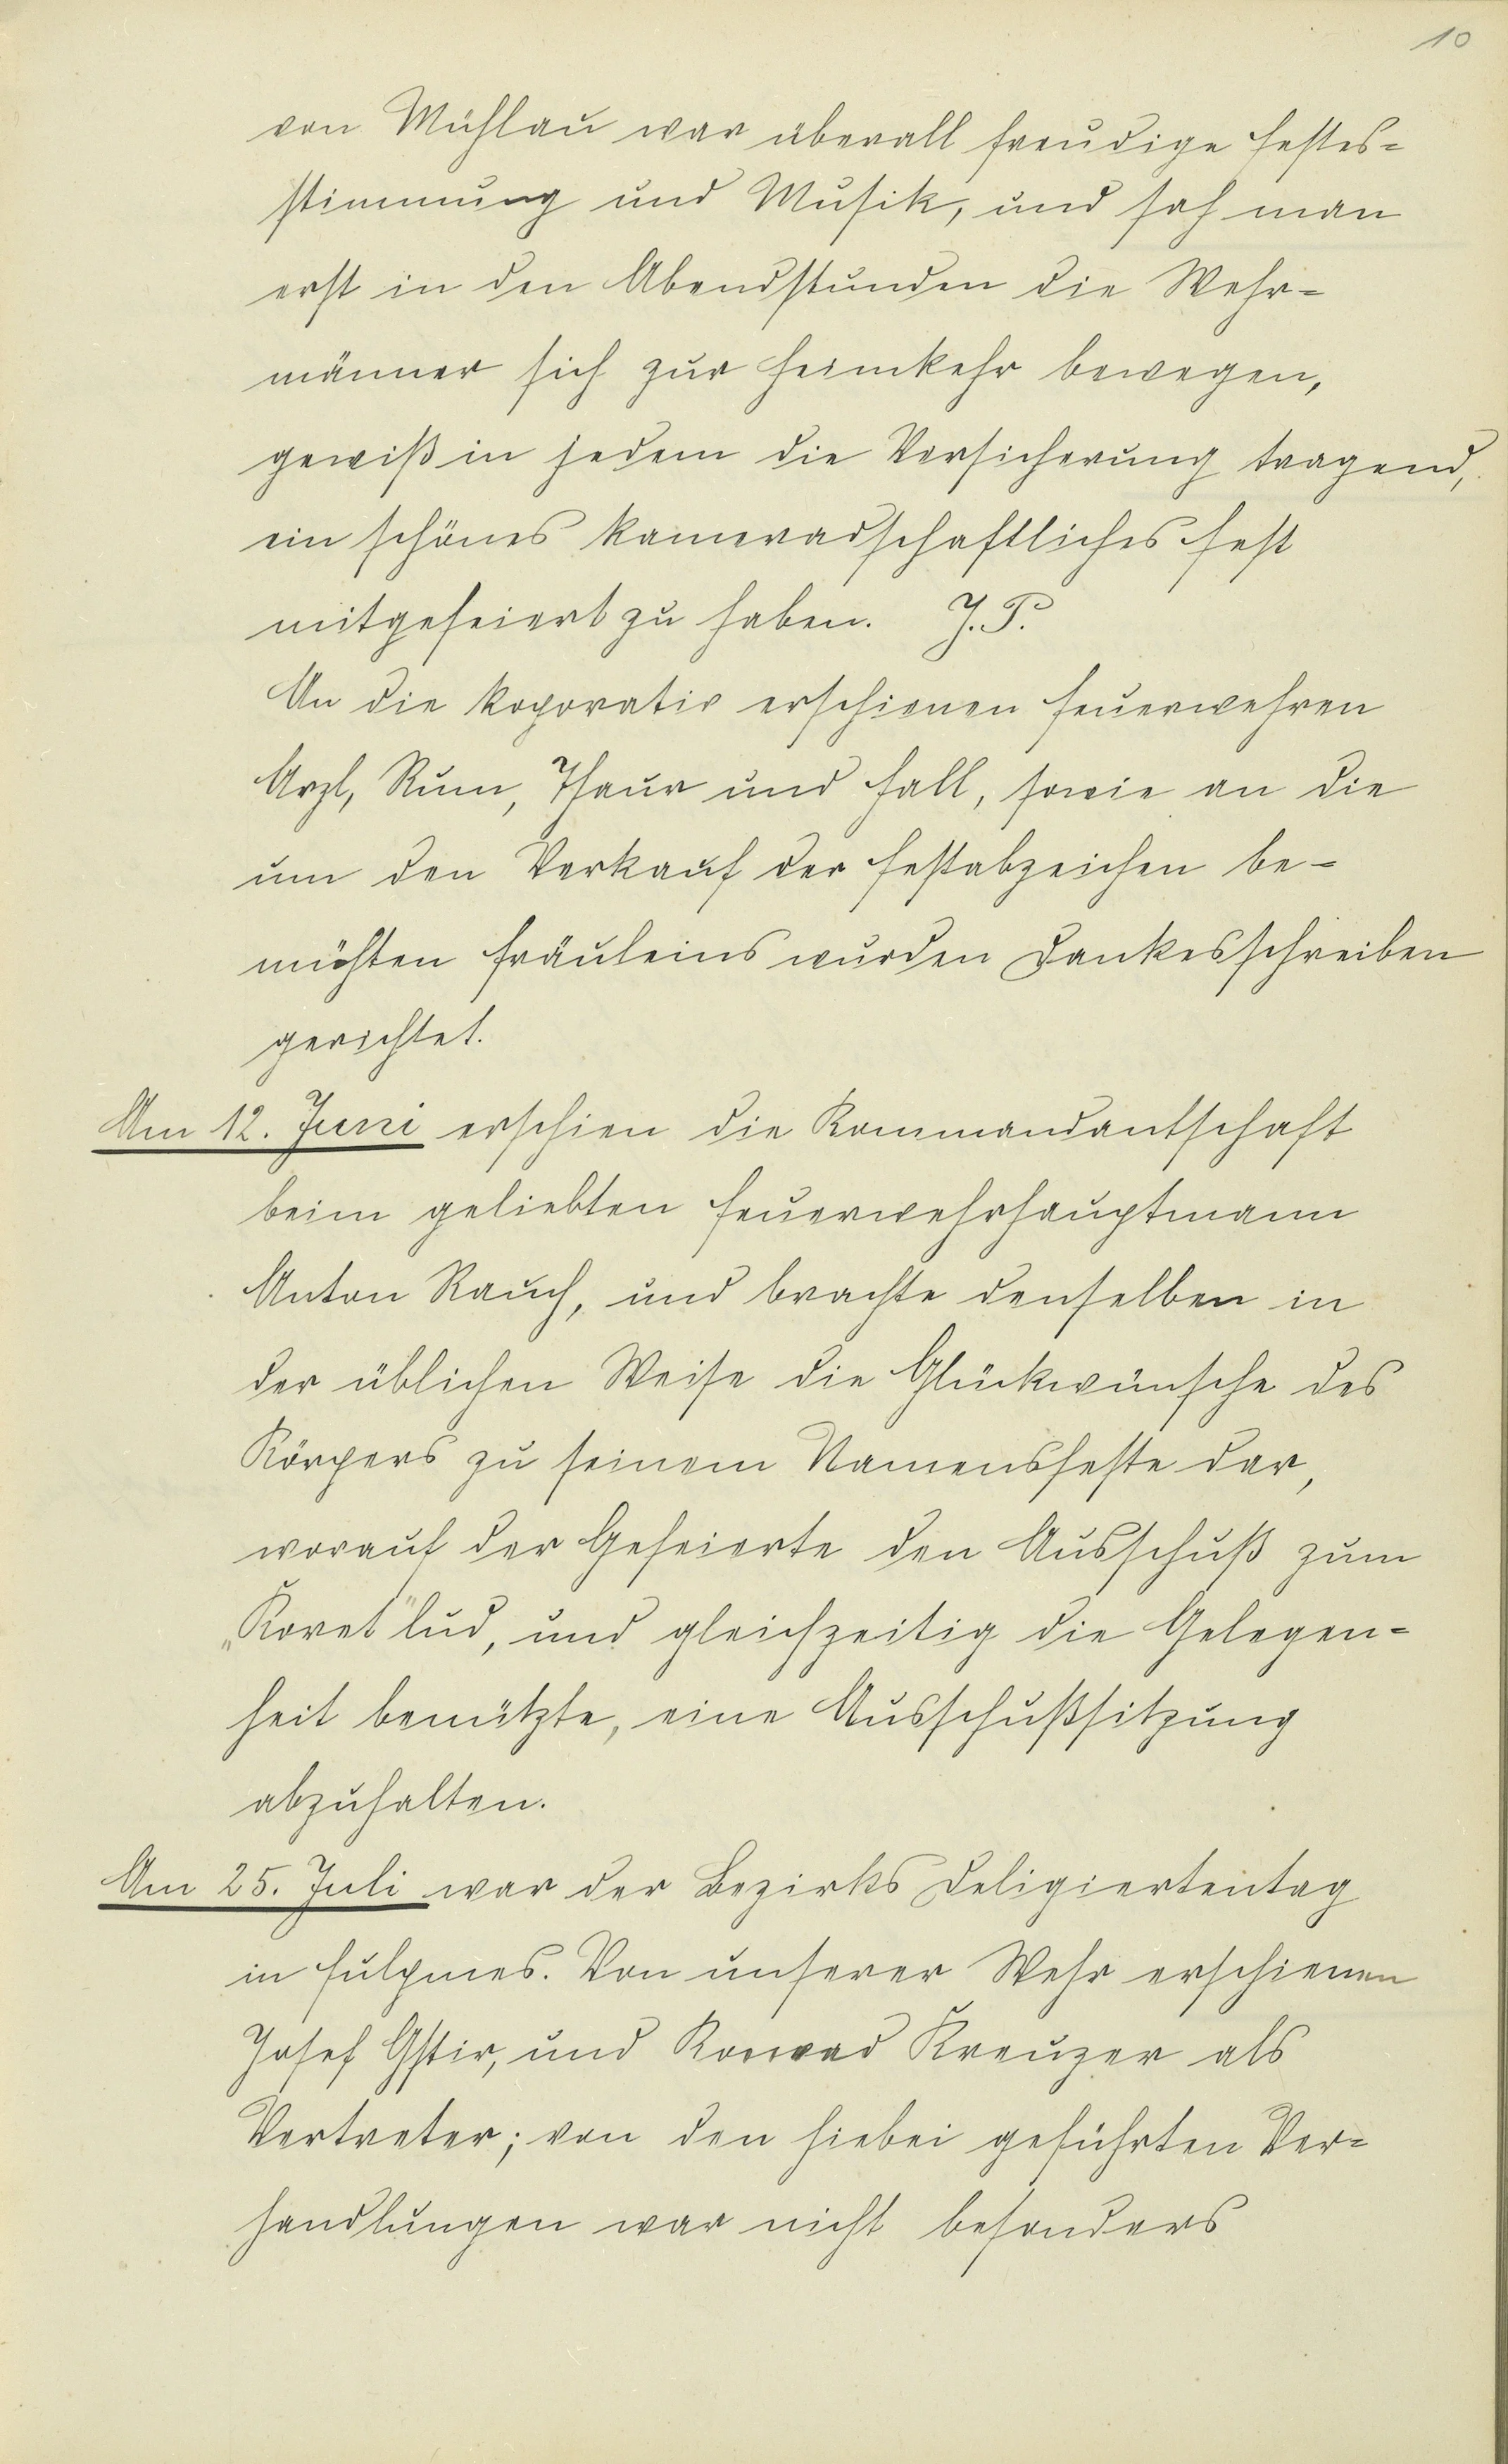 10
von Mühlau war überall freudige Festes=
stimmung und Musik, und sah man
erst in den Abendstunden die Wehr=
männer sich zur Heimkehr bewegen,
gewiß in jedem die Versicherung tragend,
ein schönes kameradschaftliches Fest
mitgefeiert zu haben. J. P.
An die koporativ erschienen Feuerwehren
Arzl, Rum, Thaur und Hall, sowie an die
um den Verkauf der Festabzeichen be=
mühten Fräuleins wurden Dankesschreiben
gerichtet.
Am 12. Juni erschien die Kommandantschaft
beim geliebten Feuerwehrhauptmann
Anton Rauch, und brachte denselben in
der üblichen Weise die Glückwünsche des
Körpers zu seinem Namensfeste dar,
worauf der Gefeierte den Ausschuß zum
„Koret" lud, und gleichzeitig die Gelegen=
heit benützte, eine Ausschußsitzung
abzuhalten.
Am 25. Juli war der Bezirks Deligiertentag
in Fulpmes. Von unserer Wehr erschienen
Josef Gstir, und Konrad Kreuzer als
Vertreter; von den hiebei geführten Ver=
handlungen war nicht besonders